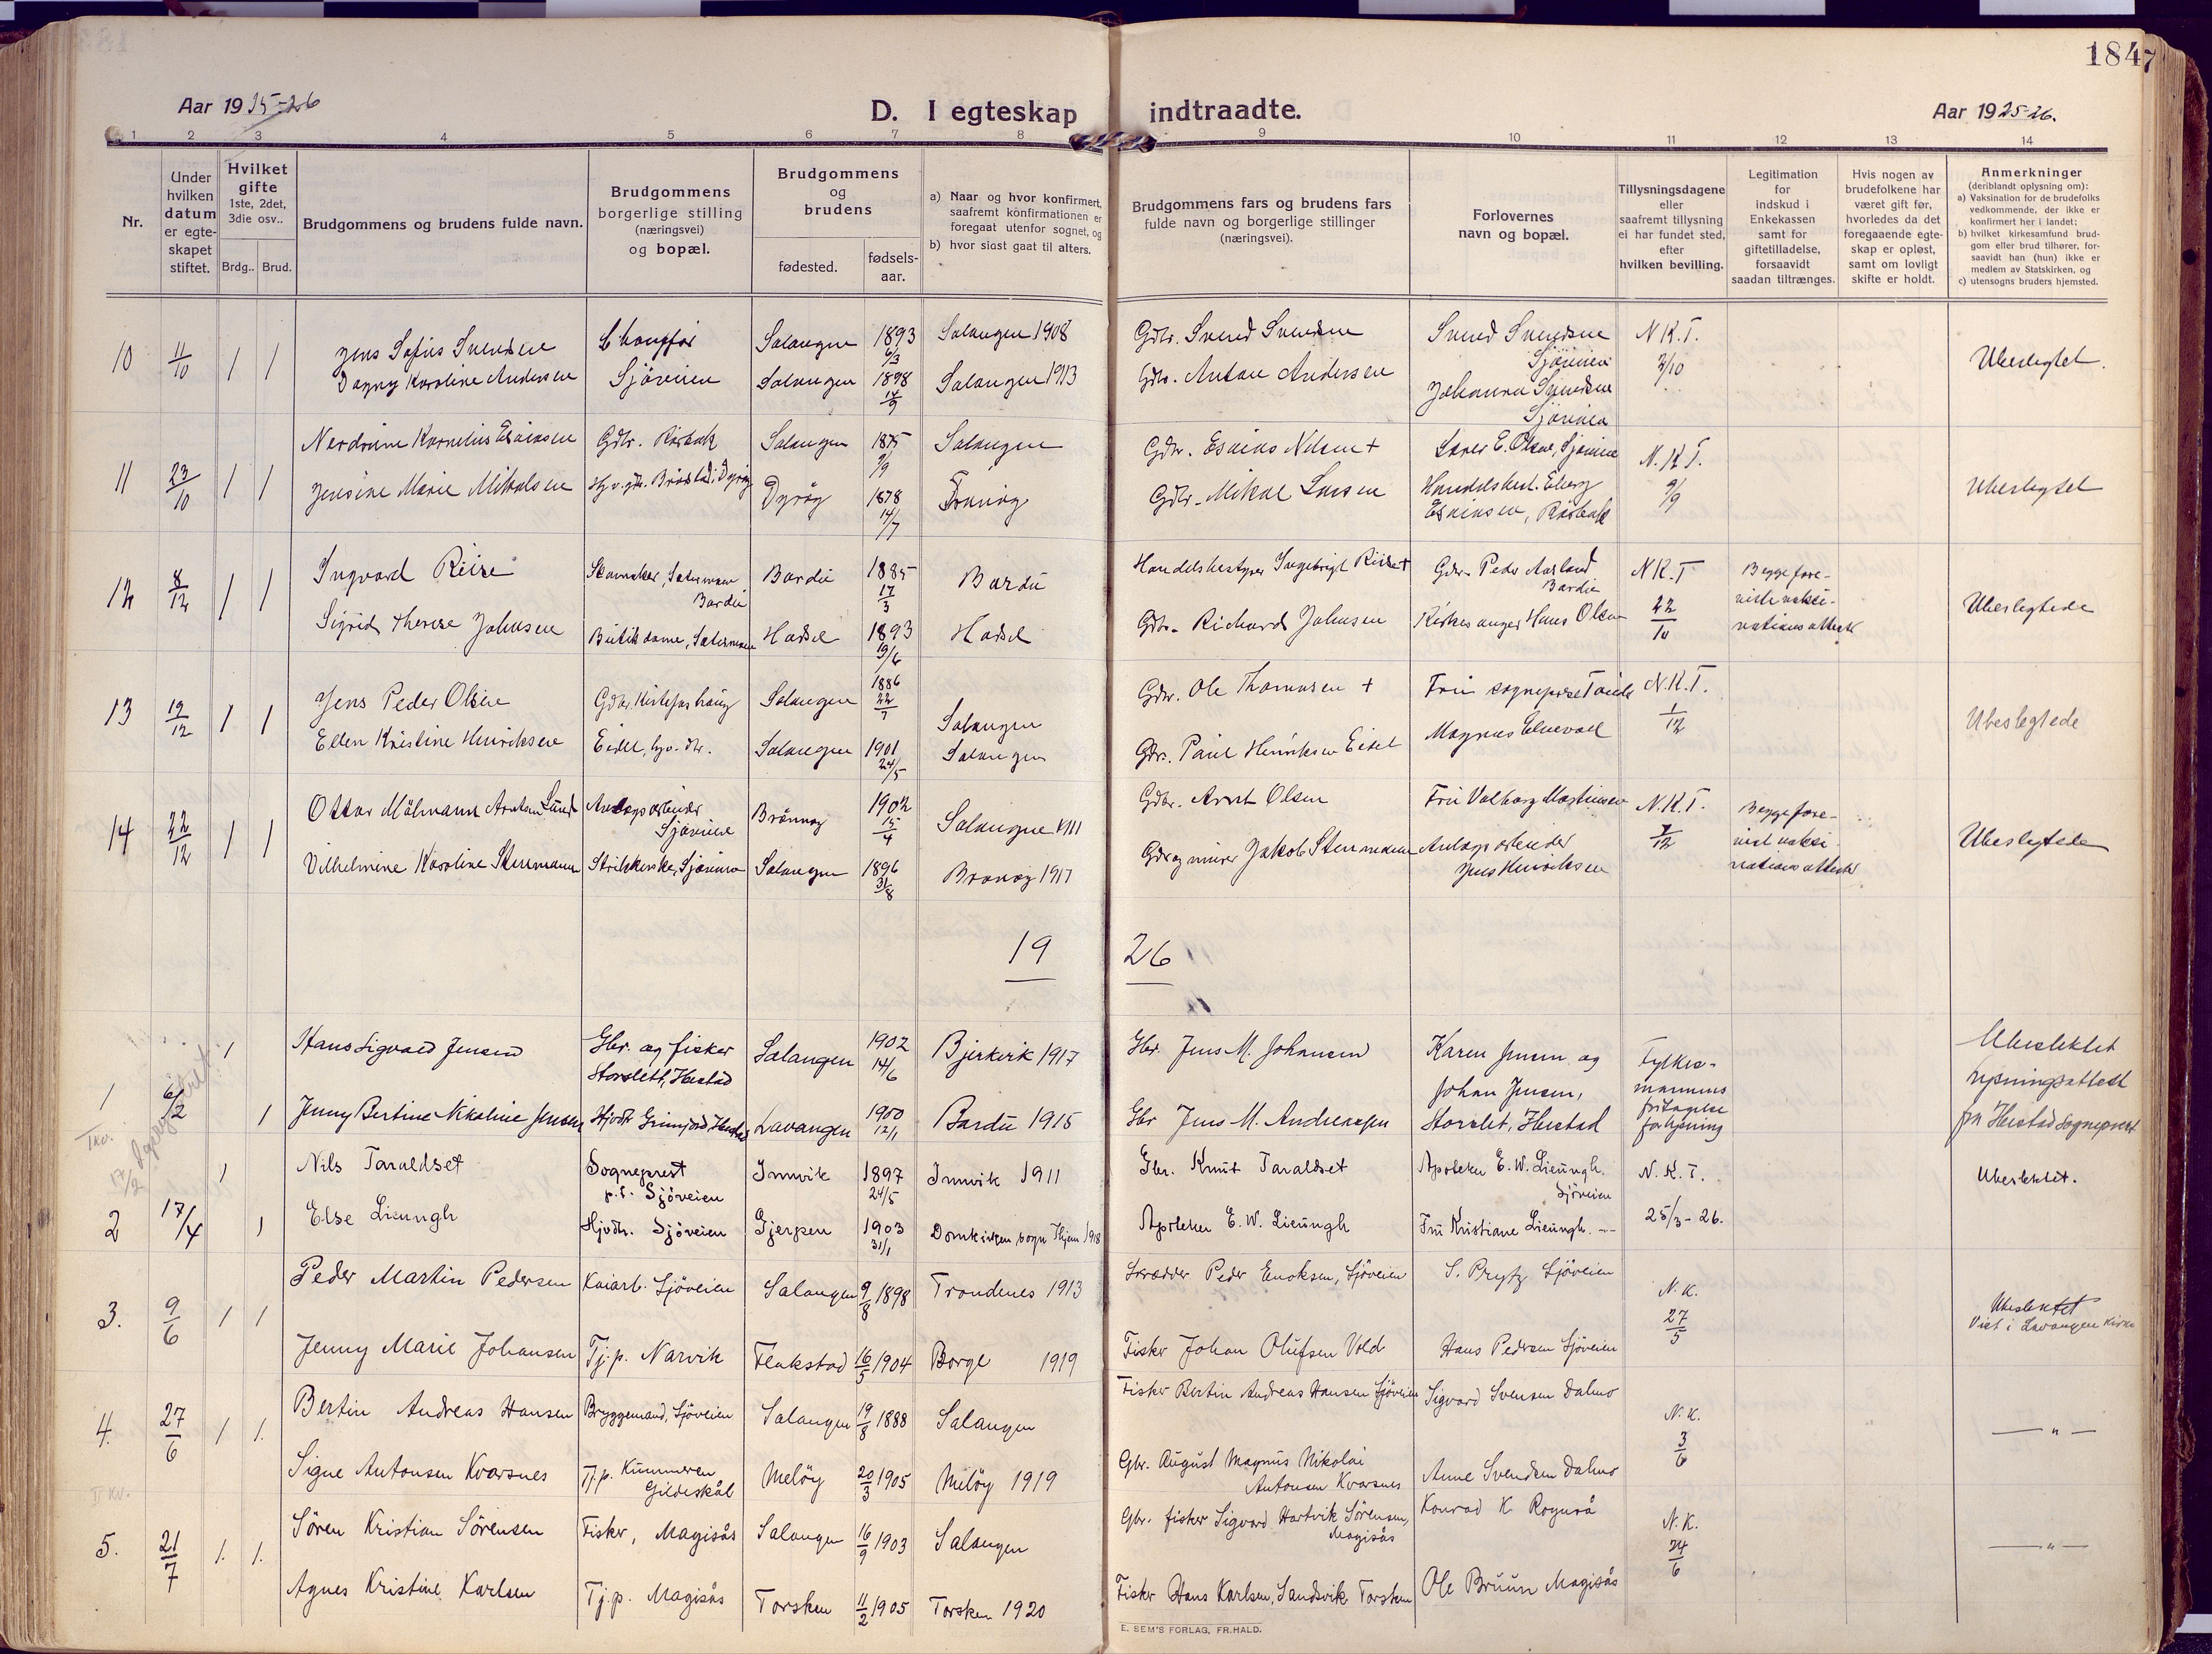 184
Aar 1925-26
D. I egteskap indtraadte.
Aar 1925-26.
1 2 3 4 5 6 7 8 9 10 11 12 13 14
Nr.
Under hvilken datum er egte-skapet stiftet.
Hvilket gifte 1ste, 2det, 3die osv..
Brdg.. Brud.
Brudgommens og brudens fulde navn.
Brudgommens borgerlige stilling (næringsvei) og bopæl.
Brudgommens og brudens
fødested.
fødsels-aar.
a) Naar og hvor konfirmert, saafremt konfirmationen er foregaat utenfor sognet, og
b) hvor sidst gaat til alters.
Brudgommens fars og brudens fars fulde navn og borgerlige stillinger (næringsvei).
Forlovernes navn og bopæl.
Tillysningsdagene eller saafremt tillysning ei har fundet sted, efter hvilken bevilling.
Legitimation for indskud i Enkekassen samt for giftetilladelse, forsaavidt saadan tiltrænges.
Hvis nogen av brudefolkene har været gift før, hvorledes da det foregaaende egte-skap er opløst, samt om lovligt skifte er holdt.
Anmerkninger (deriblandt oplysning om):
a) Vaksination for de brudefolks vedkommende, der ikke er konfirmert her i landet;
b) hvilket kirkesamfund brud-gom eller brud tilhører, for-saavidt han (hun) ikke er medlem av Statskirken, og
c) utensogns bruders hjemsted.
10 11/10 1 1 Jens Sofus Svendsen Chauffør Salangen 1893 6/3 Salangen 1908 Gdbr. Svend Svendsen Svend Svendsen Sjøveien N.K.T. 2/10 Ubeslegtet.
Dagny Karoline Andersen Sjøveien Salangen 1898 14/9 Salangen 1913 Gdbr. Anton Andersen Johanna Svendsen Sjøveien
11 23/10 1 1 Nerdrum Kornelius Esaiasen Gdbr. Rørbak Salangen 1875 9/9 Salangen Gdbr. Esaias Nilsen + Lærer E. Olsen, Sjøveien N.K.T. 9/9 Ubeslegtet
Jensine Marie Mikalsen Dyrøy 1878 14/7 Tranøy Gdbr. Mikal Larsen Handelsbest. Esaiasen, Rørbak
12 8/12 1 1 Ingvard Reire Skomaker, Sætermoen Bardu Bardu 1885 17/3 Bardu N.K.T 22/10 Begge fore-viste vaksi-nationsattest Ubeslegtede
Sigrid Therese Johnsen Butikdame, Sætermoen Hadsel 1893 19/6 Hadsel Gdbr. Richard Johnsen Kirkesanger Hans Olsen
13 19/12 1 1 Jens Peder Olsen Salangen 1886 22/7 Salangen Gdbr. Ole Thomassen + N.K.T. 1/12 Ubeslegtede
Ellen Kristine Henriksen Salangen 1901 24/5 Salangen Gdbr. Paul Henriksen Magnus Elvevold
14 22/12 1 1 Ottar Anlægsarbeider Sjøveien Brønnøy 1902 15/4 Salangen Gdbr. Arnt Olsen Fru Valborg Martinsen N.K.T. 7/12 Begge fore-vist vaksi-nationsattester Ubeslegtede
Vilhelmine Karoline Stenmann Sjøveien Salangen 1896 31/8 Brønnøy 1917 Jakob Stenmann Anlægsarbeider Jens Henriksen
19 26
1 6/2 1 Hans Sigvald Jensen Gbr. og fisker Storslett, Ibestad Salangen 1902 14/6 Bjerkvik 1917 Gbr. Jens M. Johansen Karen Jensen og Johan Jensen, Storslet, Ibestad Fylkes-mannens fritagelse for lysning Ubeslektet Lysningsattest fra Ibestad sogneprest
1 Jenny Bertine Nikoline Jensen Lavangen 1900 12/1 Bardu 1915 Gbr Jens M. Andreassen
17/2
2 17/4 1 Nils Taraldset Sogneprest p.t. Sjöveien Innvik 1897 24/5 Innvik 1911 Gbr. Knut Taraldset Apoteker E. W. Lieungh. Sjöveien N. K. T. 25/3-26. Ubeslektet.
1 Else Lieungh Hjvdtr. Sjöveien Gjerpen 1903 31/1 1918 Apoteker E. W. Lieungh Fru Kristiane Lieungh. -"-
3. 9/6 1 1 Peder Martin Pedersen Kaiarb. Sjöveien Salangen 9/8 1898 Trondenes 1913 Skrædder Peder Enoksen, Sjöveien S. Prytz Sjöveien N. K. 27/5 Ubeslektet Viet i Lavangen kirke
Jenny Marie Johansen Tj.p. Narvik Flakstad 16/5 1904 Borge 1919 Fisker Johan Olufsen Vold Hans Pedersen Sjöveien
4. 27/6 1 1. Bertin Andreas Hansen Bryggemand, Sjöveien Salangen 19/8 1888 Salangen Fisker Bertin Andreas Hansen Sjöveien Sigvard Svensen Dalmo N. K. 3/6 —"—
Signe Antonsen Kvarsnes Tj.p. Kunnveren Gildeskål Melöy 20/3 1905 Melöy 1919 Gbr. August Magnus Nikolai Antonsen Kvarsnes Anne Svendsen Dalmo
5. 21/7 1. 1. Sören Kristian Sörensen Fisker, Magisås Salangen 16/9 1903 Salangen Gbr. fisker Sigvard Hartvik Sörensen, Magisås Konrad K Rognså N. K. 24/6 —"—
Agnes Kristine Karlsen Tj.p. Magisås Torsken 11/2 1905 Torsken 1920 Fisker Hans Karlsen, Sandsvik Torsken Ole Bruun Magisås
E. SEM'S FORLAG, FR.HALD.